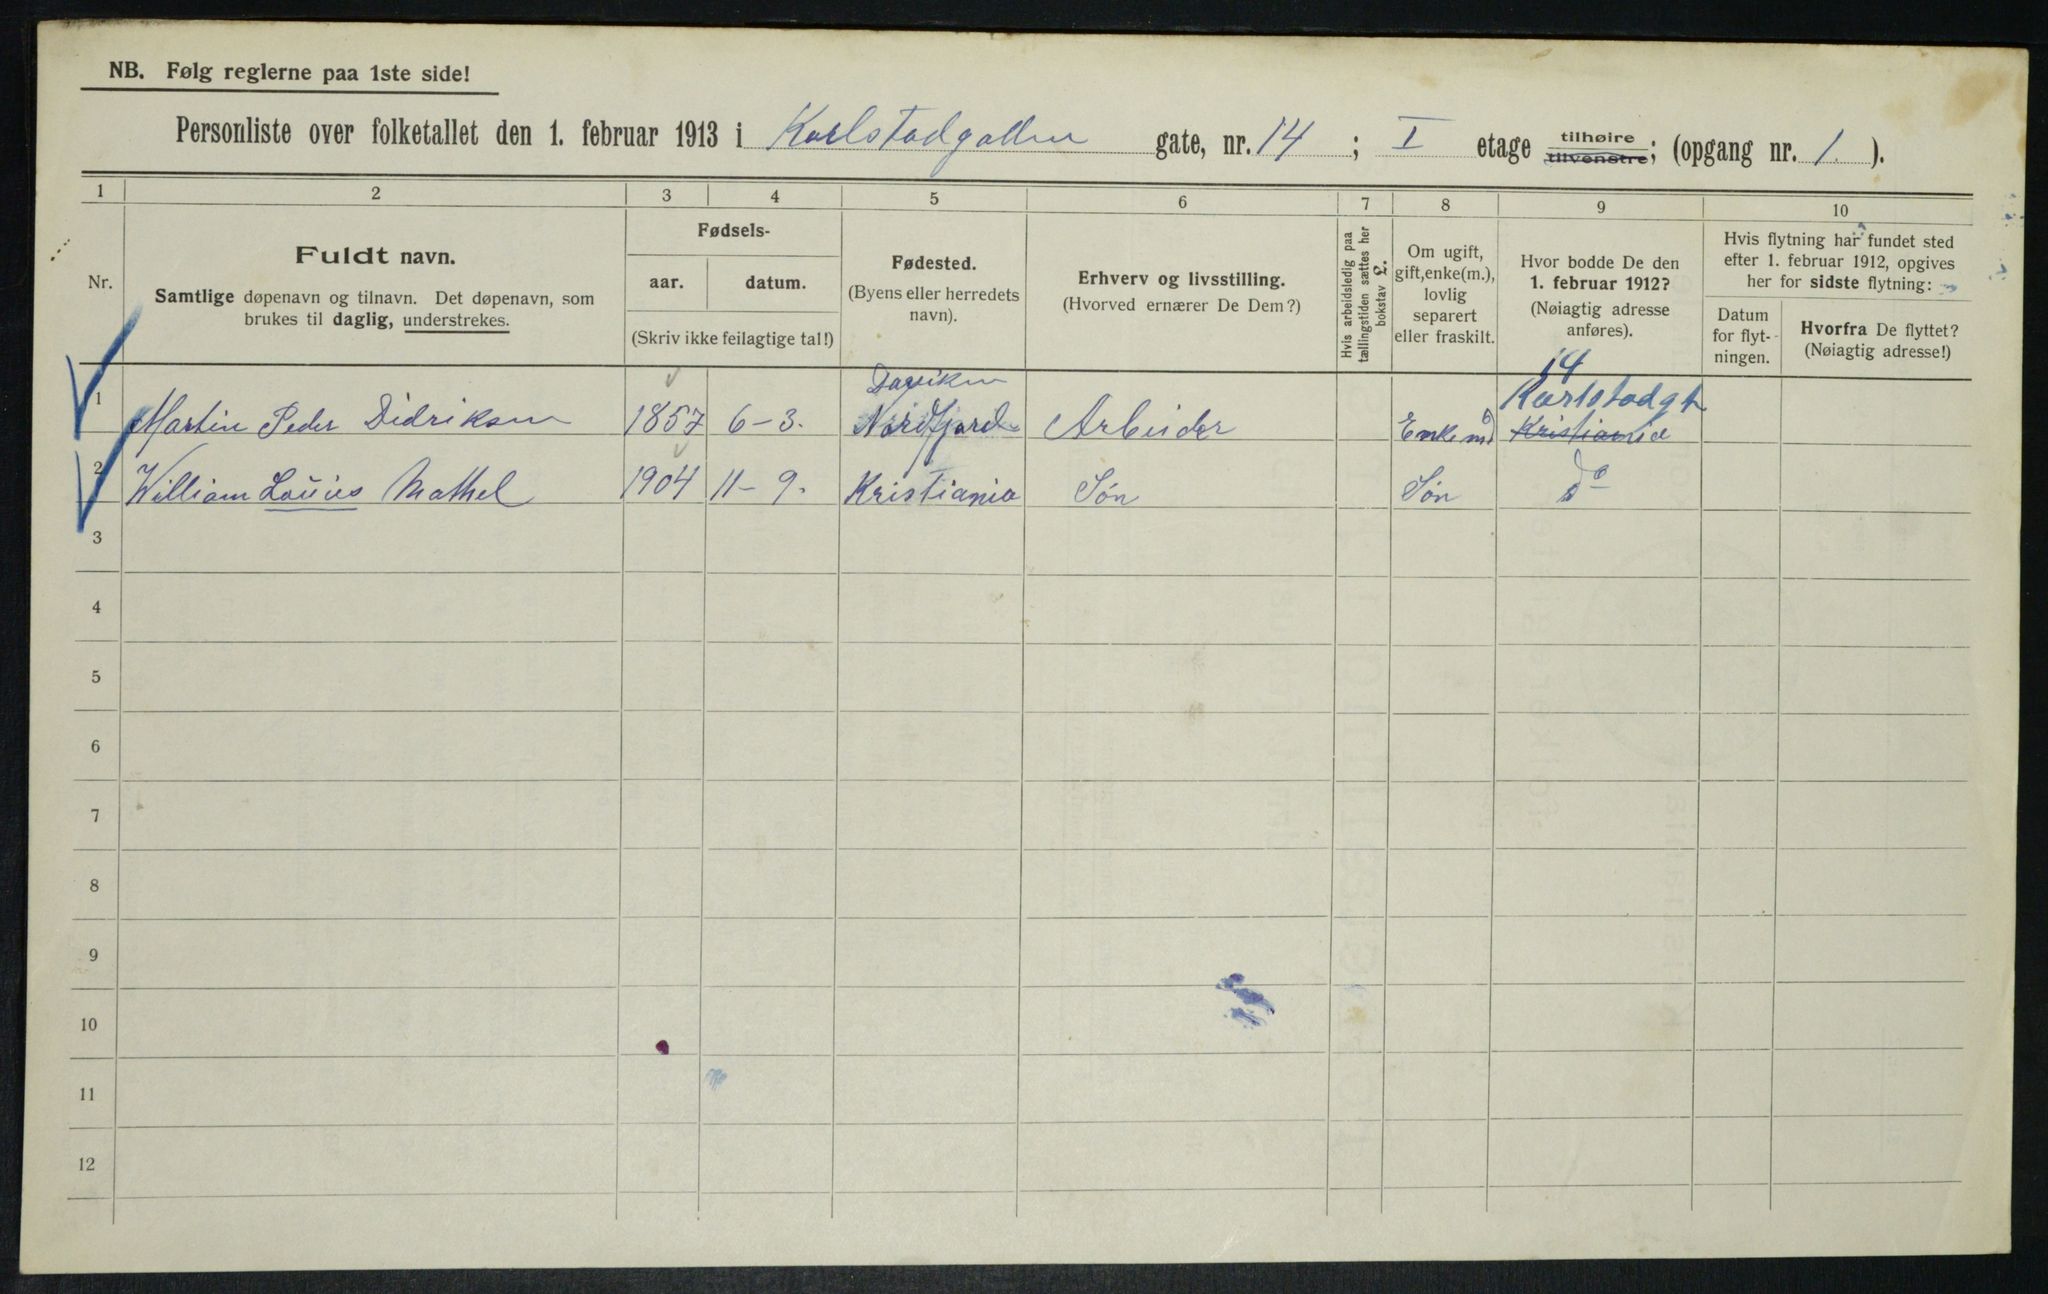 NB. Følg reglerne paa 1ste side!
Personliste over folketallet den 1. februar 1913 i Karlstadgatten gate, nr. 14 ; I etage tilhøire tilvenstre; (opgang nr. 1. ).
1 2 3 4 5 6 7 8 9 10
Nr.
Fuldt navn.
Samtlige døpenavn og tilnavn. Det døpenavn, som
brukes til daglig, understrekes.
Fødsels-
aar. datum.
(Skriv ikke feilagtige tal!)
Fødested.
(Byens eller herredets
navn).
Erhverv og livsstilling.
(Hvorved ernærer De Dem?)
Hvis arbeidsledig paa
tællingstiden sættes her
bokstav £.
Om ugift,
gift, enke(m.),
lovlig
separert
eller fraskilt.
Hvor bodde De den
1. februar 1912?
(Nøiagtig adresse
anføres).
Hvis flytning har fundet sted
efter 1. februar 1912, opgives
her for sidste flytning:
Datum
for flyt-
ningen.
Hvorfra De flyttet?
(Nøiagtig adresse!)
14
Daviken Karlstadgt
1 Martin Peder Didriksen 1857 6-3. Nordfjord Arbeider Enkemd Kristiania
2 William Louius Mathel 1904 11-9. Kristiania Søn Søn do
3
4
5
6
7
8
9
10
11
12